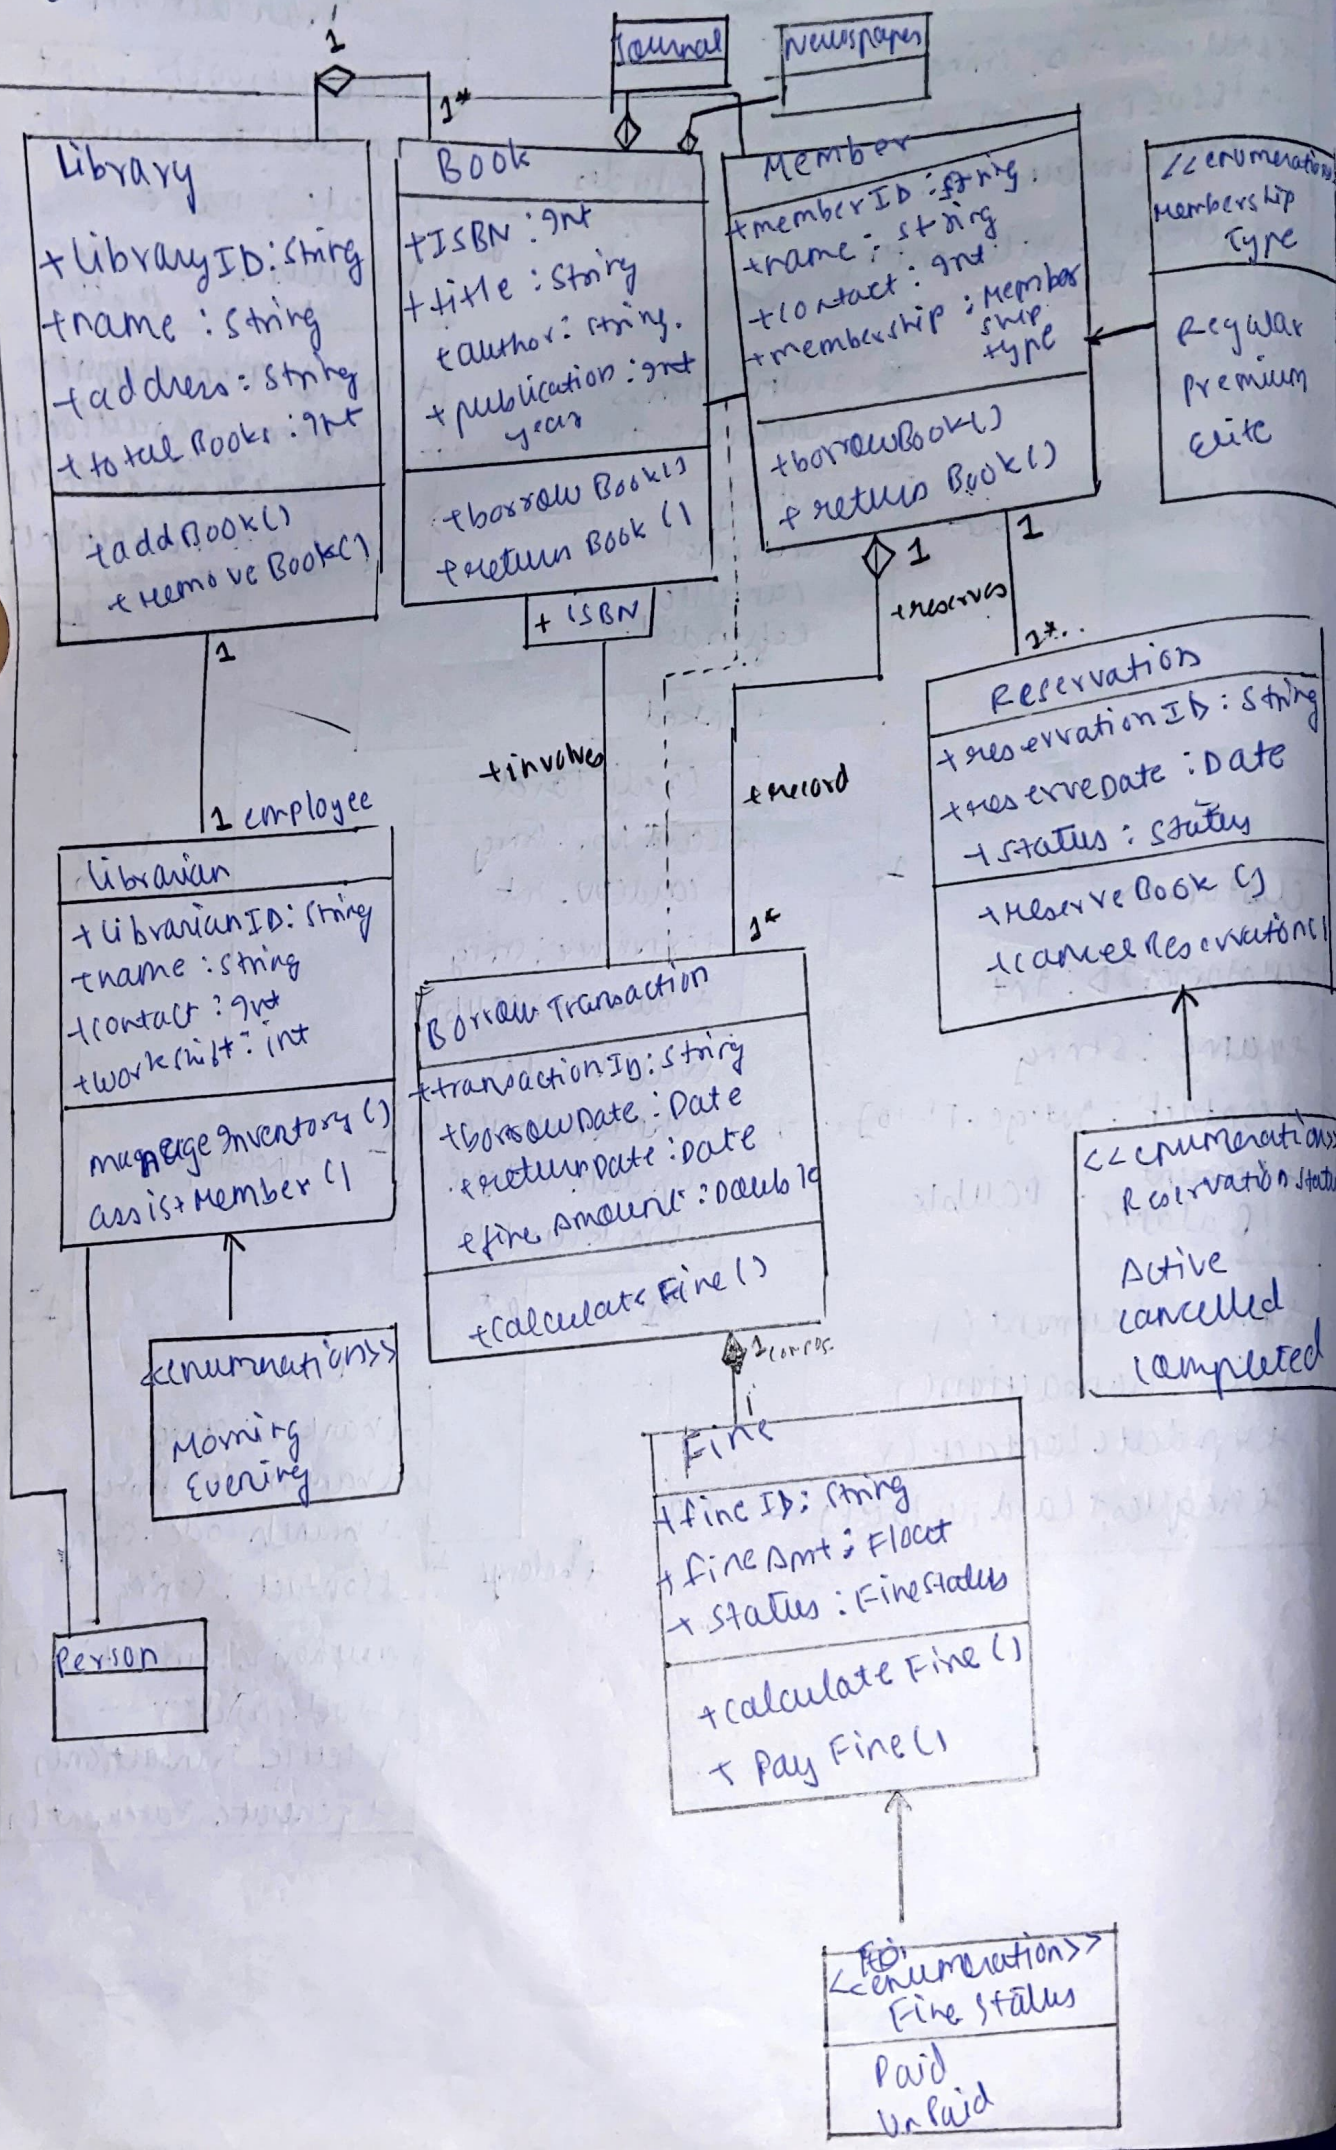 1
1*
Journal
Newspaper
Library
+LibraryID:String
+name : String
+address : String
+total Books : Int
+addBook()
+removeBook()
1
Book
+ISBN : Int
+title : String
+author : String.
+publication : Int
year
+borrow Book()
+return Book ()
+ ISBN
Member
+memberID : String
+name : String
+contact : Int
+membership : Member
ship
type
+borrowBook()
+return Book()
<<enumeration>
Membership
Type
Regular
Premium
Elite
1
1
+reserves
1*..
+involves
+record
1*
1 employee
Librarian
+LibrarianID: String
+name : String
+contact : Int
+workshift : int
manage Inventory ()
assist Member ()
<<enumeration>>
Morning
Evening
Person
Borrow Transaction
+transactionID: String
+borrowDate : Date
+returnDate : Date
+fine Amount : Double
+Calculate Fine ()
1
1
Reservation
+reservationID : String
+reserveDate : Date
+status : Status
+reserve Book ()
+cancelReservation()
<<enumeration>>
Reservation Status
Active
Cancelled
Completed
Fine
+fine ID : String
+fine Amt : Float
+ Status : FineStatus
+calculate Fine ()
+ Pay Fine()
<<enumeration>>
Fine Status
Paid
UnPaid